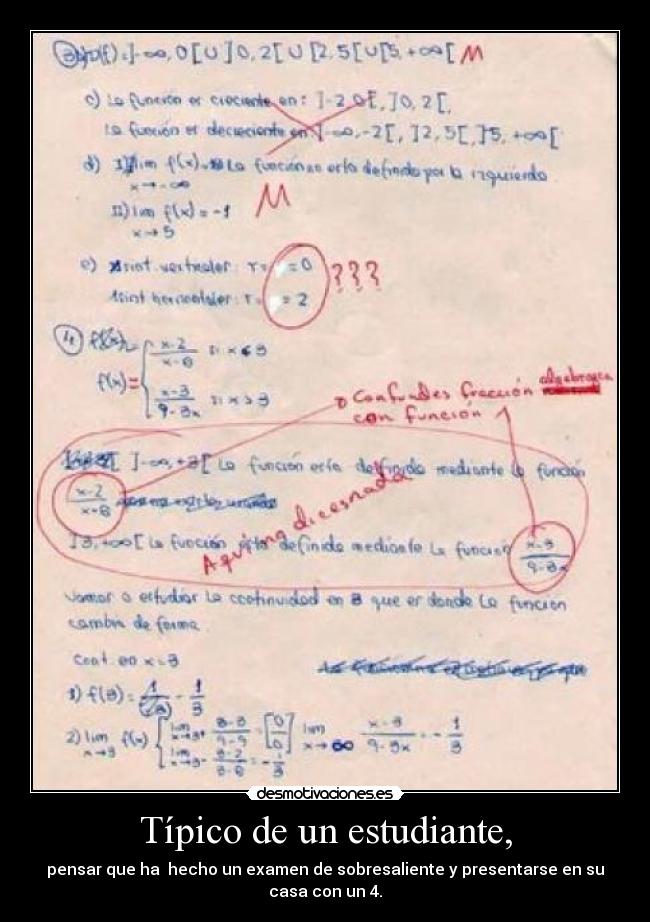 3) b) D(f) = ]-∞, 0[ U ]0, 2[ U [2, 5[ U [5, +∞[ M
c) La función es creciente en: ]-2, 0[, ]0, 2[,
la función es decreciente en: ]-∞, -2[, ]2, 5[, ]5, +∞[
d) I) lim f(x) = La función no está definida por la izquierda
x→-∞
M
II) lim f(x) = -1
x→5
e) Asint. verticales: r = = 0 ???
Asint horizontales: r = = 2
4) f(x)=
x-2 / x-6 si x<3
f(x)=
x-3 / 9-3x si x>3
Confundes fracción algebrayca
con función
]-∞, +3[ La función está definida mediante la función
x-2 / x-6
Aquí no dices nada
]3, +∞[ La función está definida mediante la función x-3 / 9-3x
Vamos a estudiar la continuidad en 3 que es donde la función
cambia de forma.
Cont. en x=3
1) f(3) = - 1/3
2) lim f(x) lim x→3+ 3-3 / 9-9 = [0/0] lim x→∞ x-3 / 9-3x = - 1/3
x→3
lim x→3- 3-2 / 3-6 = - 1/3
desmotivaciones.es
Típico de un estudiante,
pensar que ha hecho un examen de sobresaliente y presentarse en su
casa con un 4.